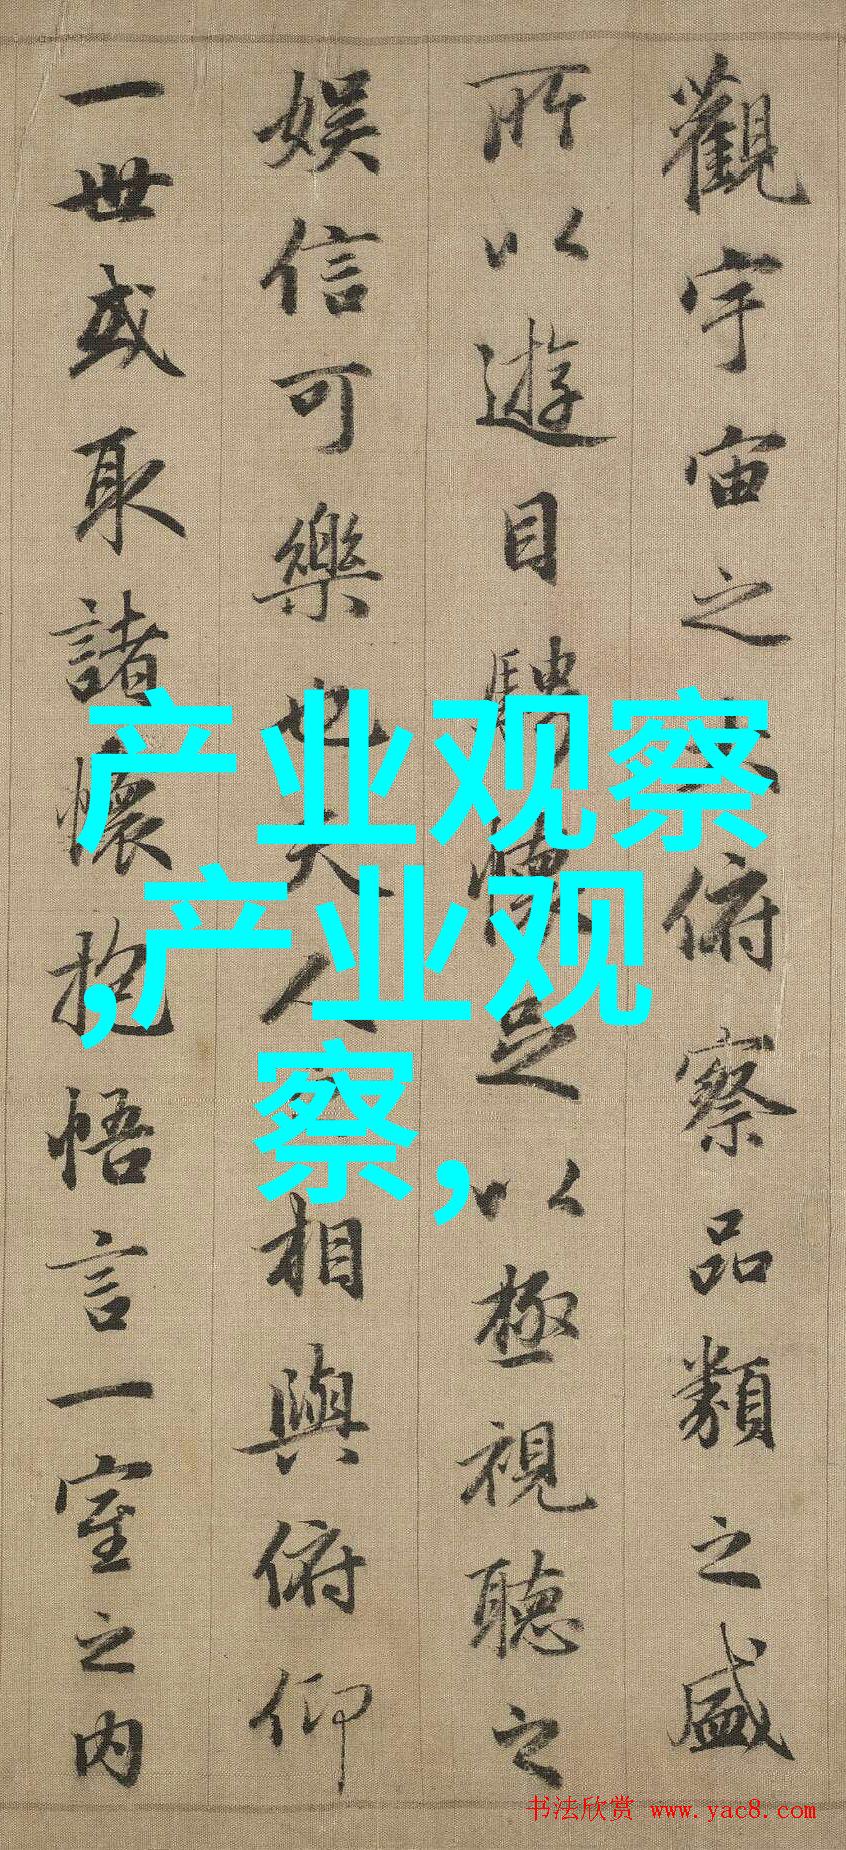 觀宇宙之大俯察品類之盛
所以遊目騁懷足以極視聽之
娛信可樂也夫人之相與俯仰
一世或取諸懷抱悟言一室之内
产业观察
,产业观
察,
书法欣赏 www.yac8.com